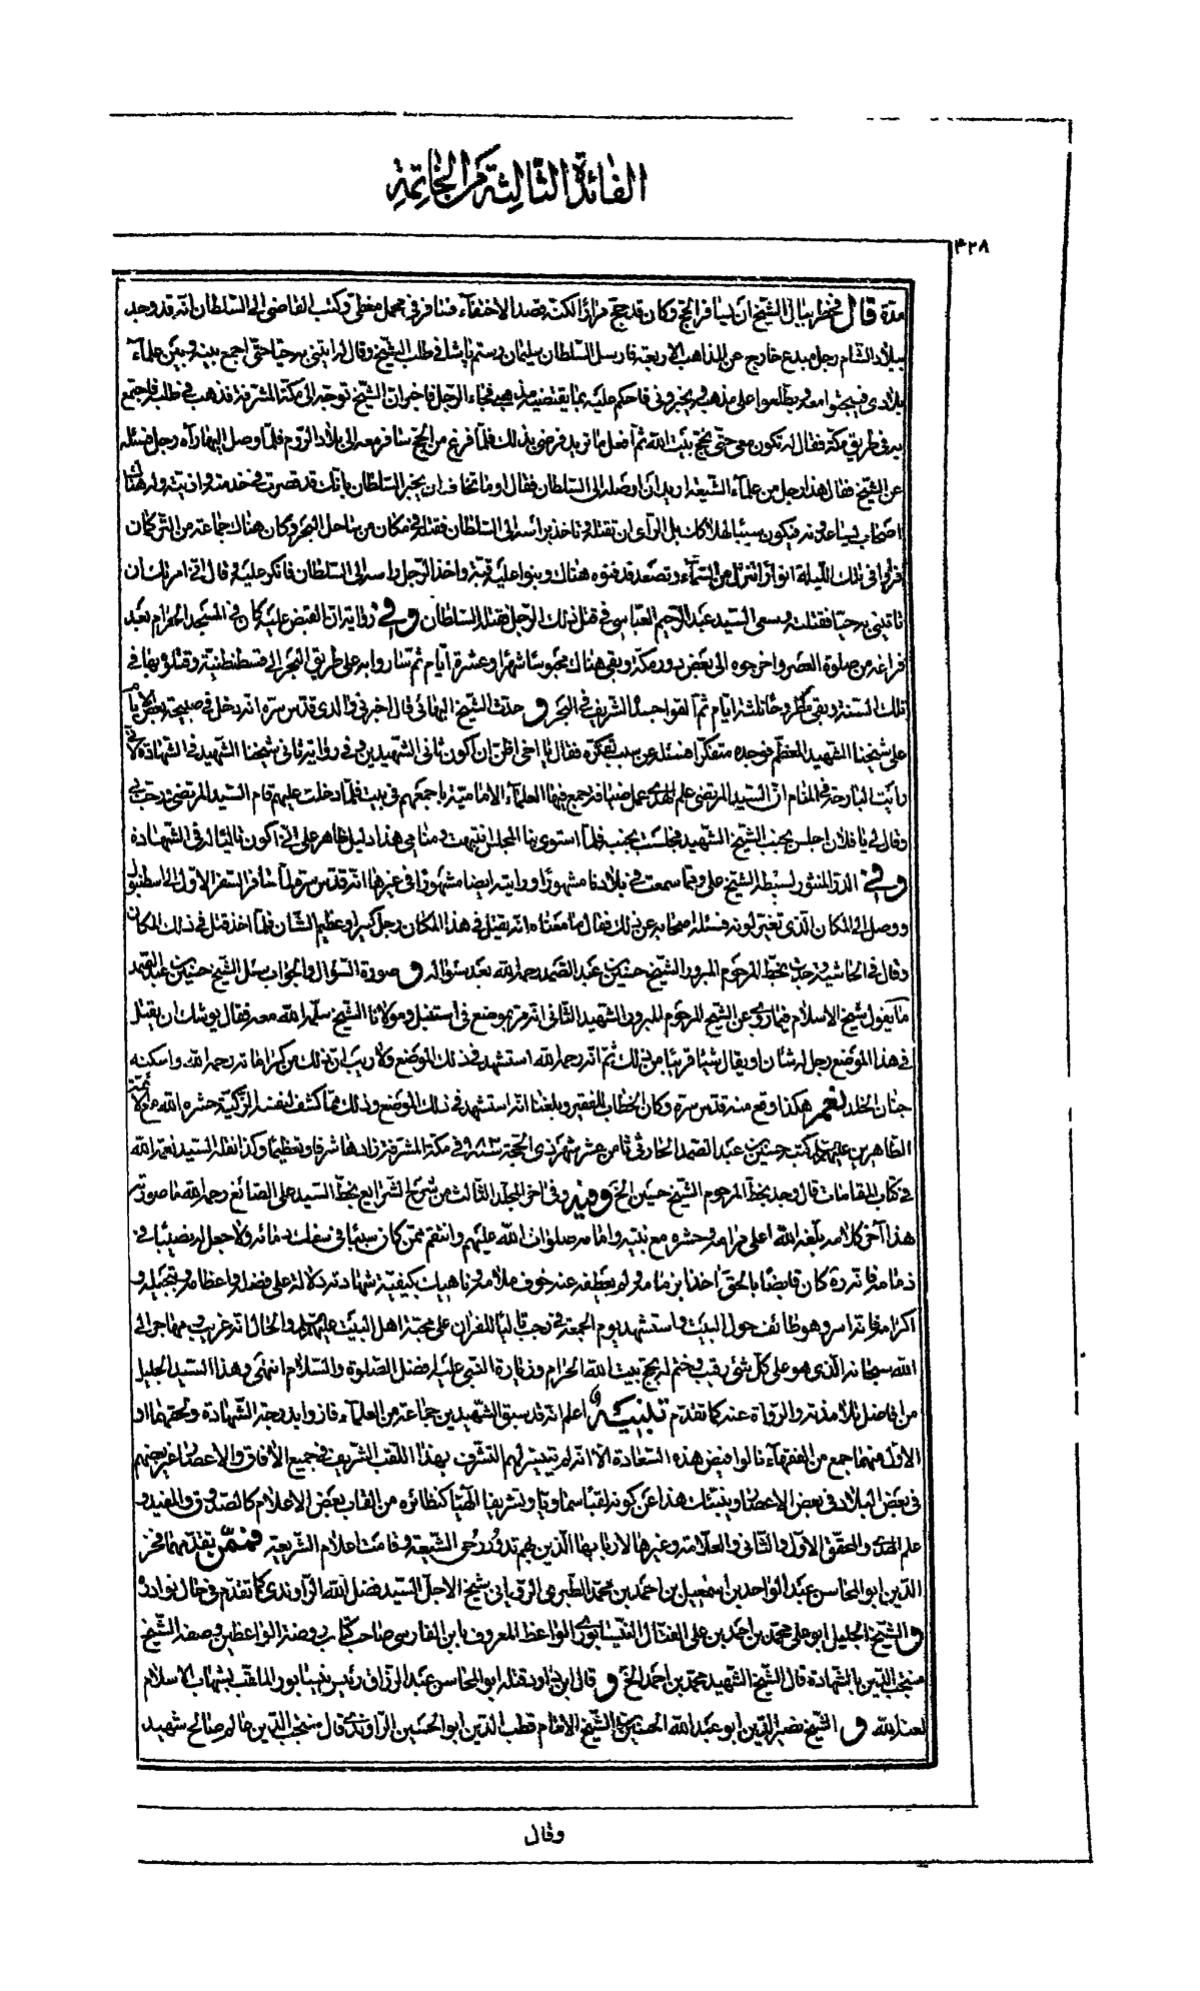 الفائدة الثالثة من الخاتمة
۴۲۸
مدة قال فخطر ببال الشيخ ان يسافر الى الحج وكان قد حج مرارا لكنه قصد الاختفاء فسافر في محمل مغطى وكتب القاضي الى السلطان انه قد وجد
ببلاد الشام رجل مبدع خارج عن المذاهب الاربعة فارسل السلطان سليمان رستم پاشا في طلب الشيخ وقال له ايتني به حيا حتى اجمع بينه وبين علماء
بلادي فيبحثوا معه ويطلعوا على مذهبه ويخبروني فاحكم عليه بما يقتضيه مذهبي فجاء الرجل فاخبر ان الشيخ توجه الى مكة المشرفة فذهب في طلبه فاجتمع
به في طريق مكة فقال له تكون معي حتى نحج بيت الله ثم افعل ما تريد فرضي بذلك فلما فرغ من الحج سافر معه الى بلاد الروم فلما وصل اليها رآه رجل فسئله
عن الشيخ فقال هذا رجل من علماء الشيعة اريد ان اوصله الى السلطان فقال اوما تخاف ان يخبر السلطان بانك قد قصرت في خدمته واذيته وله هناك
اصحاب يساعدونه فيكون سببا لهلاكك بل الرأي ان تقتله وتاخذ براسه الى السلطان فقتله في مكان من ساحل البحر وكان هناك جماعة من التركمان
فرأوا في تلك الليلة انوارا تنزل من السماء وتصعد فدفنوه هناك وبنوا عليه قبة واخذ الرجل راسه الى السلطان فانكر عليه وقال اني امرتك ان
تاتيني به حيا فقتلته وسعى السيد عبد الرحيم العباسي في قتل ذلك الرجل فقتله السلطان وفي رواية ان القبض عليه كان في المسجد الحرام بعد
فراغه من صلوة العصر واخرجوه الى بعض دور مكة وبقي هناك محبوسا شهرا وعشرة ايام ثم ساروا به على طريق البحر الى قسطنطنية وقتلوه بها في
تلك السنة وبقي مطروحا ثلثة ايام ثم القوا جسده الشريف في البحر و حدث الشيخ البهائي قال اخبرني والدي قدس سره انه دخل في صبيحة بعض الايام
على شيخنا الشهيد المعظم فوجده متفكرا فسئله عن سبب تفكره فقال يا اخي اظن ان اكون ثاني الشهيدين وفي رواية ثاني شيخنا الشهيد في الشهادة لاني
رايت البارحة في المنام ان السيد المرتضى علم الهدى عمل ضيافة جمع فيها العلماء الامامية باجمعهم في بيت فلما دخلت عليهم قام السيد المرتضى ورحب بي
وقال لي يا فلان اجلس بجنب الشيخ الشهيد فجلست بجنبه فلما استوى بنا المجلس انتبهت ومنامي هذا دليل ظاهر على اني اكون تاليا له في الشهادة
وفي الدر المنثور لسبطه الشيخ علي ومما سمعت في بلادنا مشهورا ورايته ايضا مشهورا في غيرها انه قدس سره لما سافر السفر الاول الى اسطنبول
ووصل الى المكان الذي قتل فيه تغير لونه فسئله اصحابه عن ذلك فقال ما معناه انه يقتل في هذا المكان رجل كبير او عظيم الشان فلما اخذ قتل في ذلك المكان
وقال في الحاشية وجدت بخط المرحوم المبرور الشيخ حسين بن عبد الصمد رحمه الله بعد سئواله و صورة السؤال والجواب سئل الشيخ حسين بن عبد الصمد
ما يقول شيخ الاسلام فيما روي عن الشيخ المرحوم المبرور الشهيد الثاني انه مر بموضع في استنبل ومولانا الشيخ سلمه الله معه فقال يوشك ان يقتل
في هذا الموضع رجل له شان او يقال شيئا قريبا من ذلك ثم انه رحمه الله استشهد في ذلك الموضع ولا ريب ان ذلك من كراماته رحمه الله واسكنه
جنان الخلد نعم هكذا وقع منه قدس سره وكان الخطاب للفقير وبلغنا انه استشهد في ذلك الموضع وذلك مما كشف لنفسه الزكية حشره الله مع الائمة
الطاهرين عليهم السلام كتبه حسين بن عبد الصمد الحارثي ثامن عشر شهر ذي الحجة ۹۸۳ في مكة المشرفة زادها شرفا وتعظيما وكذا نقله السيد نعمة الله
في كتاب المقامات قال وجد بخط المرحوم الشيخ حسين الخ وفيه وفي اخر المجلد الثالث من شرح الشرايع بخط السيد علي الصائغ رحمه الله ما صورته
هذا آخر كلامه بلغه الله اعلى مرامه وحشره مع نبيه وامامه صلوات الله عليهم وانتقم ممن كان سببا في سفك دمائه ولا جعل له نصيبا في
ذمامه فانه رده كان قابضا بالحق اخذا بزمامه ولم يعطفه عنه خوف ملامه وناهيك بكيفية شهادته دلالة على فضله واعظامه وتبجيله و
اكرامه فانه اسر وهو طائف حول البيت واستشهد يوم الجمعة في رجب تاليا للقرآن على محبة اهل البيت عليهم السلام والحال انه غريب ومهاجر الى
الله سبحانه الذي هو على كل شئ رقيب وختم له بحج بيت الله الحرام وزيارة النبي عليه افضل الصلوة والسلام انتهى وهذا السيد الجليل
من افاضل تلامذته والرواة عنه كما تقدم تنبيه اعلم انه قد سبق الشهيدين جماعة من العلماء فازوا بدرجة الشهادة ولحقهما او
الاول منهما جمع من الفقهاء نالوا فيض هذه السعادة الا انه لم يتيسر لهم التشرف بهذا اللقب الشريف في جميع الافاق والاعصار غير بعضهم
في بعض البلاد في بعض الاعصار وينبئك هذا عن كونه لقبا سماويا وتشريفا الهيا كنظائره من القاب بعض الاعلام كالصدوق والمفيد و
علم الهدى والمحقق الاول والثاني والعلامة وغيرها لاربابها الذين بهم تدور رحى الشيعة وقامت اعلام الشريعة فممن تقدمهما فخر
الدين ابو المحاسن عبد الواحد بن اسمعيل بن احمد بن محمد الطبري الروياني شيخ الاجل السيد فضل الله الراوندي كما تقدم في حال نوادره
و الشيخ الجليل ابو علي محمد بن احمد بن علي الفتال النيسابوري الواعظ المعروف بابن الفارسي صاحب كتاب روضة الواعظين وصفه الشيخ
منتجب الدين بالشهادة قال الشيخ الشهيد محمد بن احمد الخ و قال ابن داود قتله ابو المحاسن عبد الرزاق رئيس نيسابور الملقب بشهاب الاسلام
لعنه الله و الشيخ نصير الدين ابو عبد الله الحسين بن الشيخ الامام قطب الدين ابو الحسين الراوندي قال منتجب الدين عالم صالح شهيد
وقال